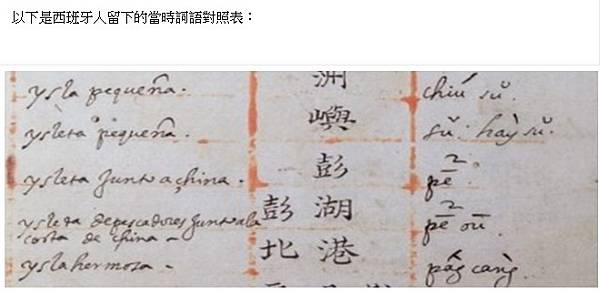 以下是西班牙人留下的當時詞語對照表：
ysla pequeña. 洲 chiú sŭ.
ysleta pequeña. 嶼 sŭ. hày sŭ.
ysleta junto a china. 彭 pē
ysleta de pescadores junto a la 彭湖 pē oū.
costa de china
ysla hermosa 北港 cang.